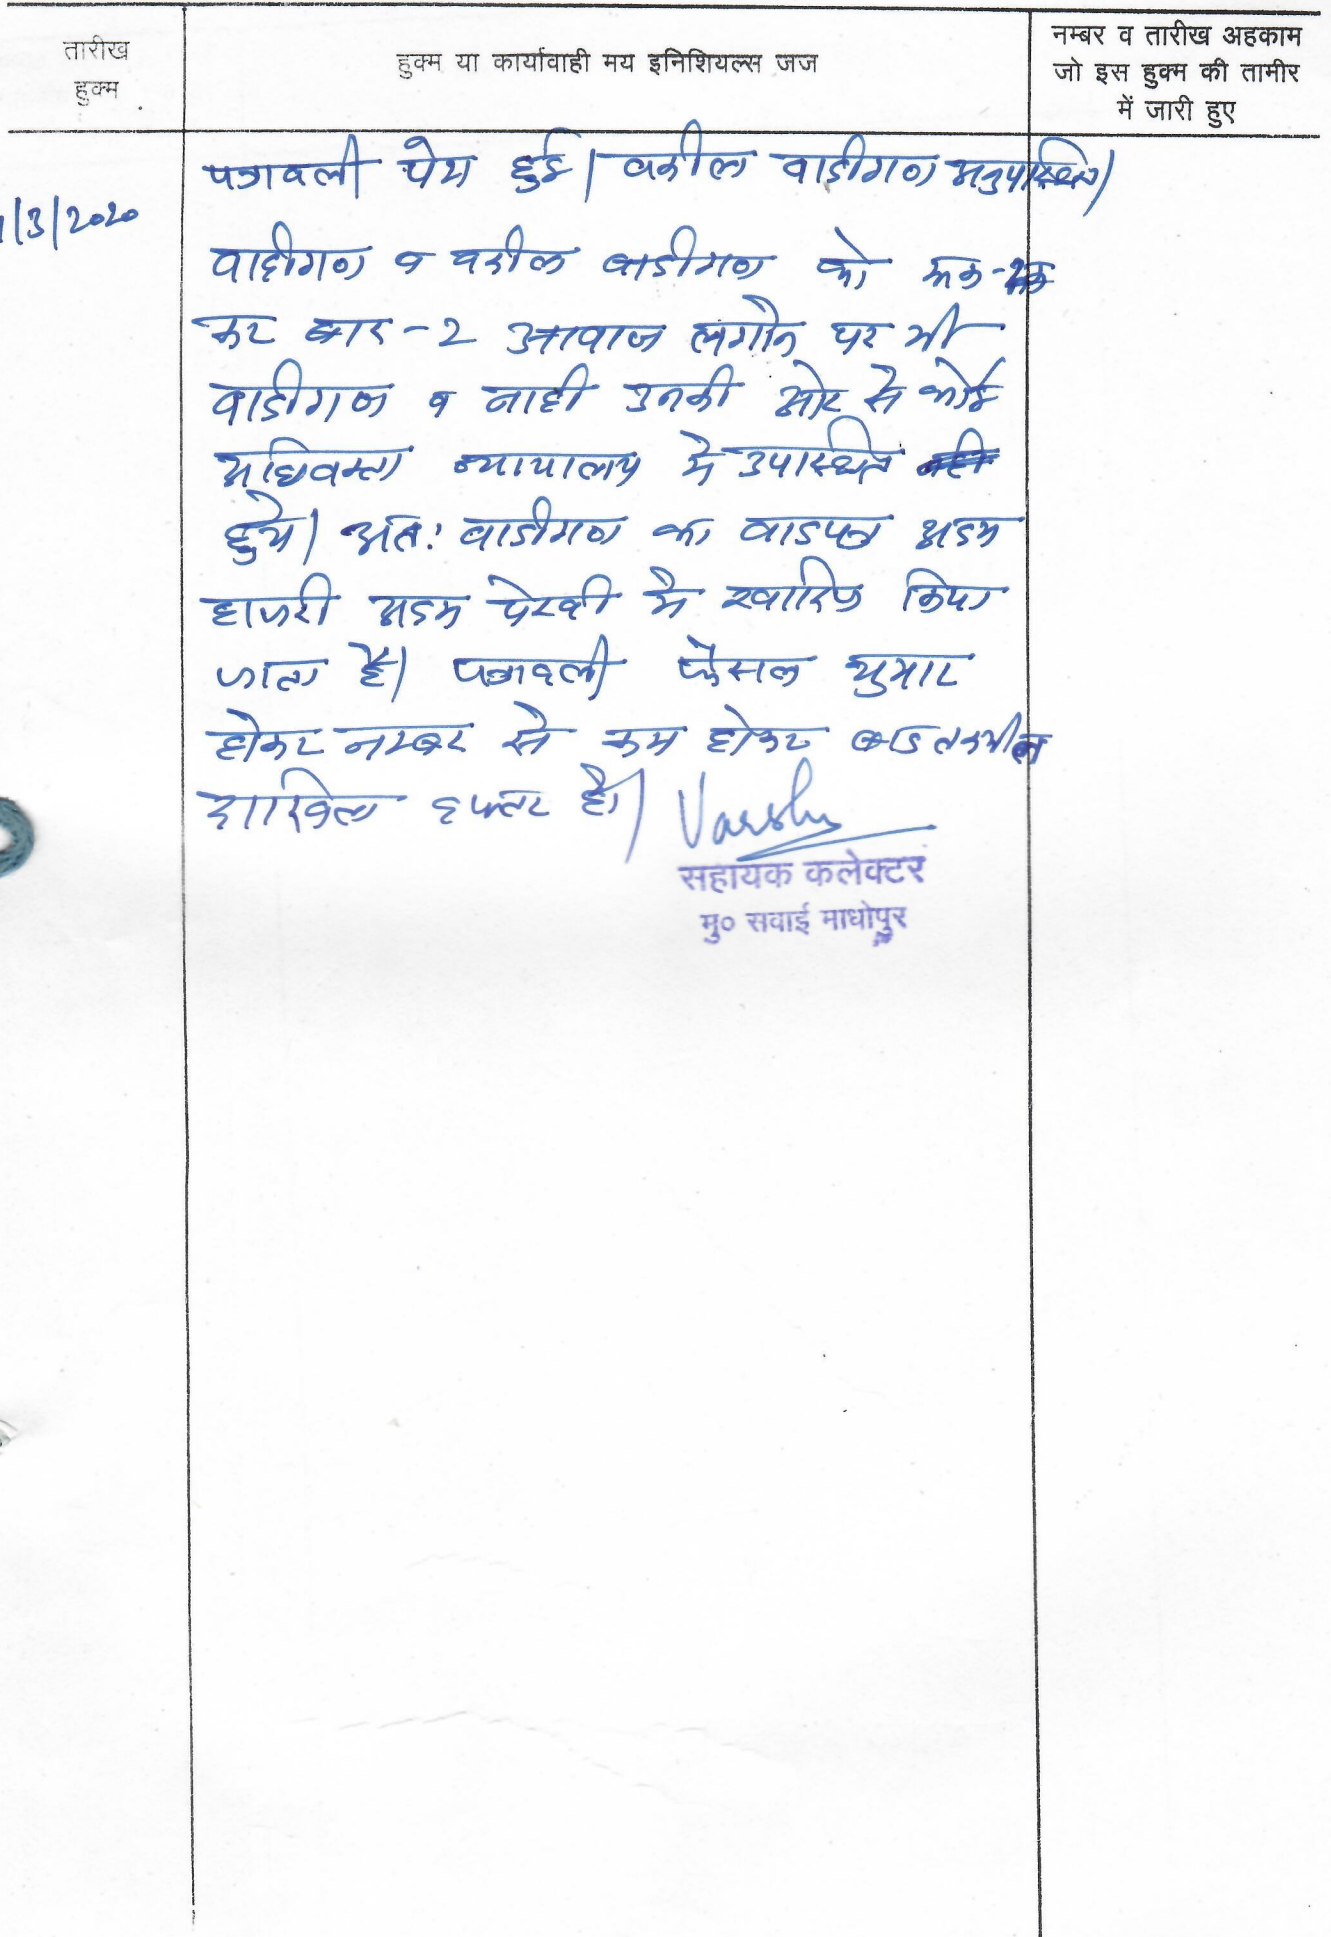 तारीख
हुक्म
हुक्म या कार्यावाही मय इनिशियल्स जज
नम्बर व तारीख अहकाम
जो इस हुक्म की तामीर
में जारी हुए
/3/2020
पत्रावली पेश हुई। वकील वादीगण अनुपस्थित।
वादीगण व वकील वादीगण को रूक-रूक
कर बार-2 आवाज लगाने पर भी
वादीगण व नाही उनकी ओर से कोई
अधिवक्ता न्यायालय मे उपस्थित
हुये। अतः वादीगण का वादपत्र अदम
हाजरी अदम पेरवी मे खारिज किया
जाता है। पत्रावली फैसल शुमार
होकर नम्बर से कम होकर बाद तकमील
दाखिल दफ्तर है।
Varsha
सहायक कलेक्टर
मु० सवाई माधोपुर